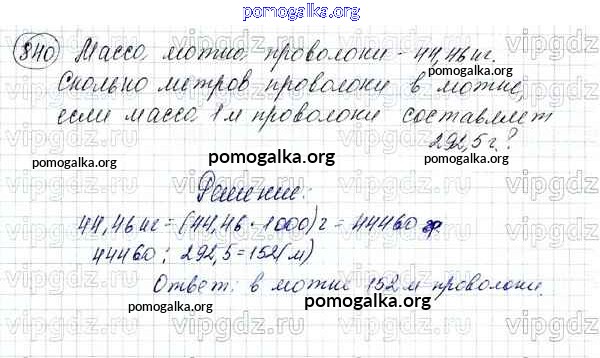 pomogalka.org
840 Масса мотка проволоки - 44,46 кг.
pomogalka.org
Сколько метров проволоки в мотке,
если масса 1 м проволоки составляет
292,5 г?
pomogalka.org
pomogalka.org
pomogalka.org
Решение:
44,46 кг = (44,46 · 1000) г = 44460 гр.
44460 : 292,5 = 152 (м)
pomogalka.org
Ответ: в мотке 152 м проволоки.
pomogalka.org
pomogalka.org
vipgdz.ru